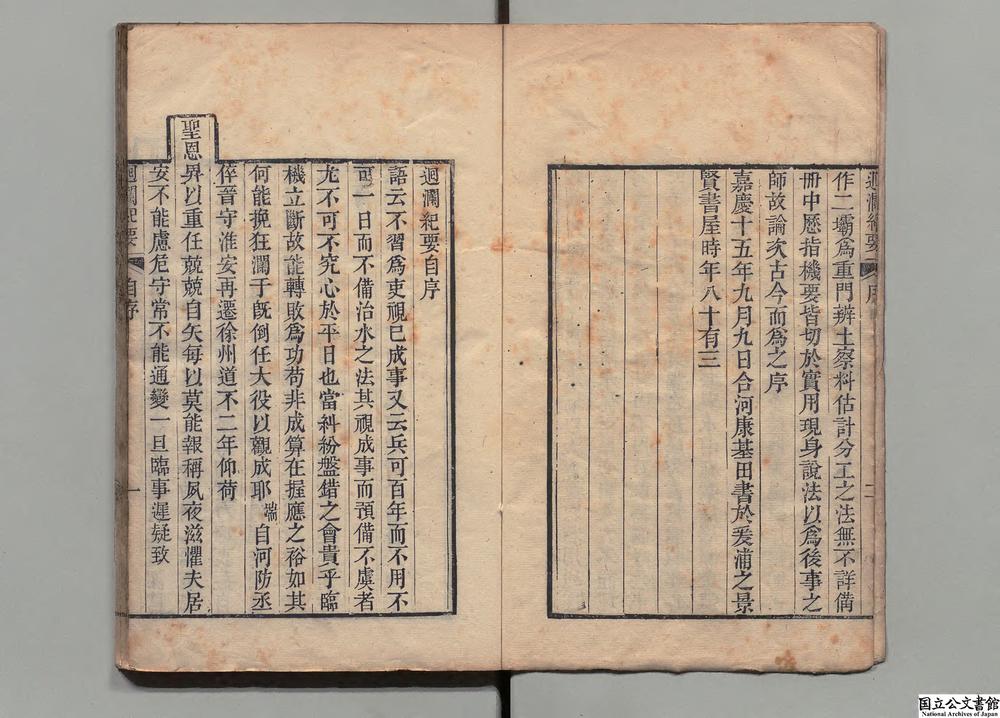 迴瀾紀要
序
二
作二壩爲重門辨土察料估計分工之法無不詳備
冊中歷指機要皆切於實用現身說法以爲後事之
師故論次古今而爲之序
嘉慶十五年九月九日合河康基田書於爰浦之景
賢書屋時年八十有三
迴瀾紀要自序
語云不習爲吏視已成事又云兵可百年而不用不
可一日而不備治水之法其視成事而預備不虞者
尤不可不究心於平日也當糾紛盤錯之會貴乎臨
機立斷故能轉敗爲功苟非成算在握應之裕如其
何能挽狂瀾于既倒任大役以觀成耶端自河防丞
倅晉守淮安再遷徐州道不二年仰荷
聖恩畀以重任兢兢自矢每以莫能報稱夙夜滋懼夫居
安不能慮危守常不能通變一旦臨事遲疑致
迴瀾紀要
自序
一
国立公文書館
National Archives of Japan